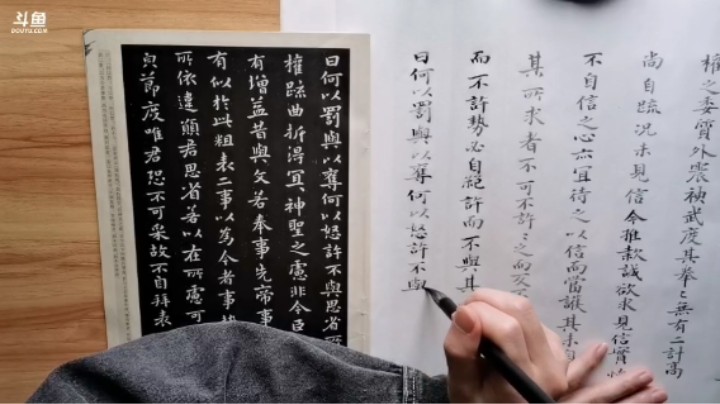 斗鱼
DOUYU.COM
權之委質外震神武度其拳〻無有二計高
尚自疏況未見信今推款誠欲求見信實
不自信之心亦宜待之以信而當護其未自
其所求者不可不許〻之而反不
而不許勢必自絕許而不與其
曰何以罰與以奪何以怒許不與
曰何以罰與以奪何以怒許不與思省所
權疏曲折得宜神聖之慮非今臣
有增益昔與文若奉事先帝事
有似於此粗表二事以為今者事勢
所依違願君思省若以在所慮可
貞節度唯君恐不可采故不自拜表